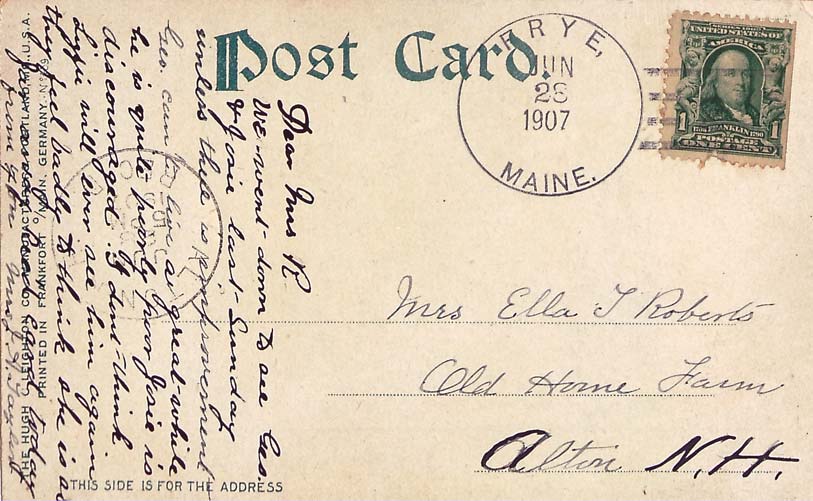 Post Card.
FRYE,
JUN
28
1907
MAINE.
SERIES 1902
UNITED STATES OF
AMERICA
1706 FRANKLIN 1790
1 POSTAGE 1
ONE CENT
Mrs Ella T Roberts
Old Home Farm
Alton N.H.
Dear Mrs R
We went down to see Geo.
& Josie last Sunday
unless there is improvement
Geo. can live a great while
he is quite poorly poor Josie is
discouraged. I dont think
Lizzie will ever see him again
they feel badly to think she is
card today
from
THIS SIDE IS FOR THE ADDRESS
THE HUGH C. LEIGHTON CO., MANUFACTURERS, PORTLAND, ME., U.S.A.
PRINTED IN FRANKFORT O/MAIN, GERMANY. No